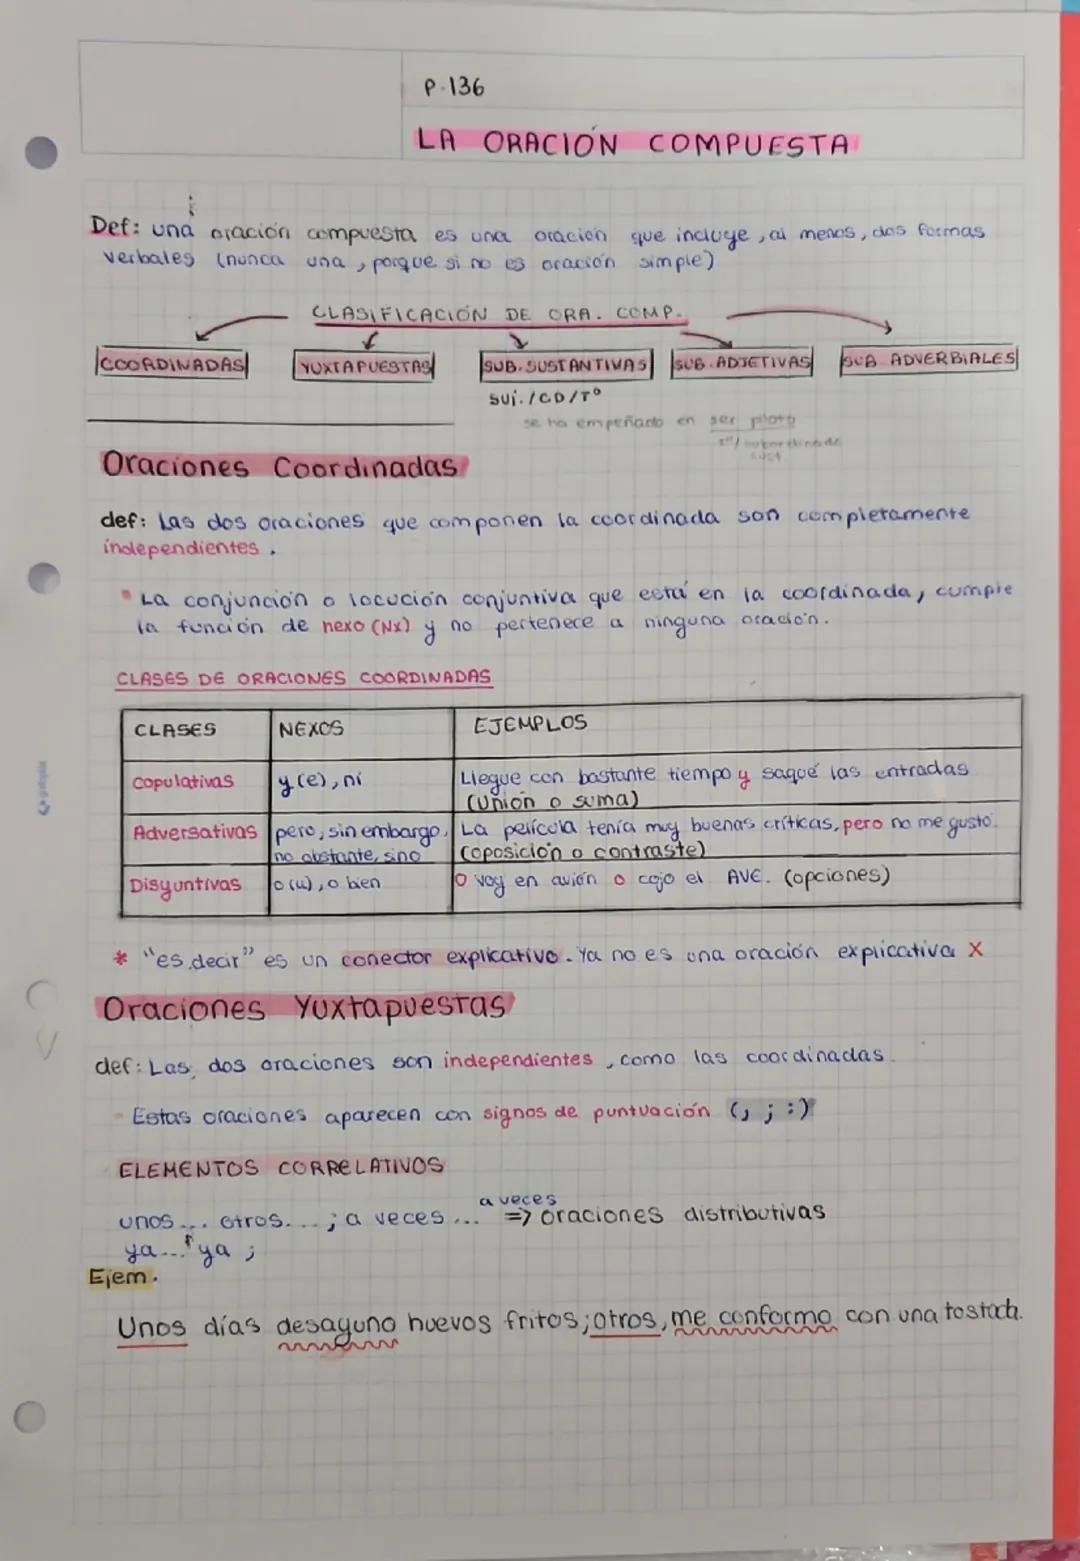 P.136
LA ORACIÓN COMPUESTA
Def: una oración compuesta es una oración que incluye, al menos, dos formas
verbales (nunca una, porque si no es oración simple)
CLASIFICACIÓN DE ORA. COMP.
COORDINADAS YUXTAPUESTAS SUB. SUSTANTIVAS SUB. ADJETIVAS SUB ADVERBIALES
SUj./CD/Tº
se ha empeñado en ser piloto
Tº/subordinada
sust
Oraciones Coordinadas
def: Las dos oraciones que componen la coordinada son completamente
independientes.
La conjunción o locución conjuntiva que está en la coordinada, cumple
la función de nexo (NX) y no pertenece a ninguna oración.
CLASES DE ORACIONES COORDINADAS
CLASES NEXOS EJEMPLOS
Copulativas y(e), ni Llegue con bastante tiempo y saqué las entradas
(unión o suma)
Adversativas pero, sin embargo, La película tenía muy buenas críticas, pero no me gustó.
no obstante, sino (oposición o contraste)
Disyuntivas o(u), o bien O voy en avión o cojo el AVE. (opciones)
* "es decir" es un conector explicativo. Ya no es una oración explicativa X
Oraciones Yuxtapuestas
def: Las dos oraciones son independientes, como las coordinadas.
Estas oraciones aparecen con signos de puntuación (, ; :)
ELEMENTOS CORRELATIVOS
a veces
unos... otros...; a veces... => oraciones distributivas
ya... ya;
Ejem.
Unos días desayuno huevos fritos; otros, me conformo con una tostada.